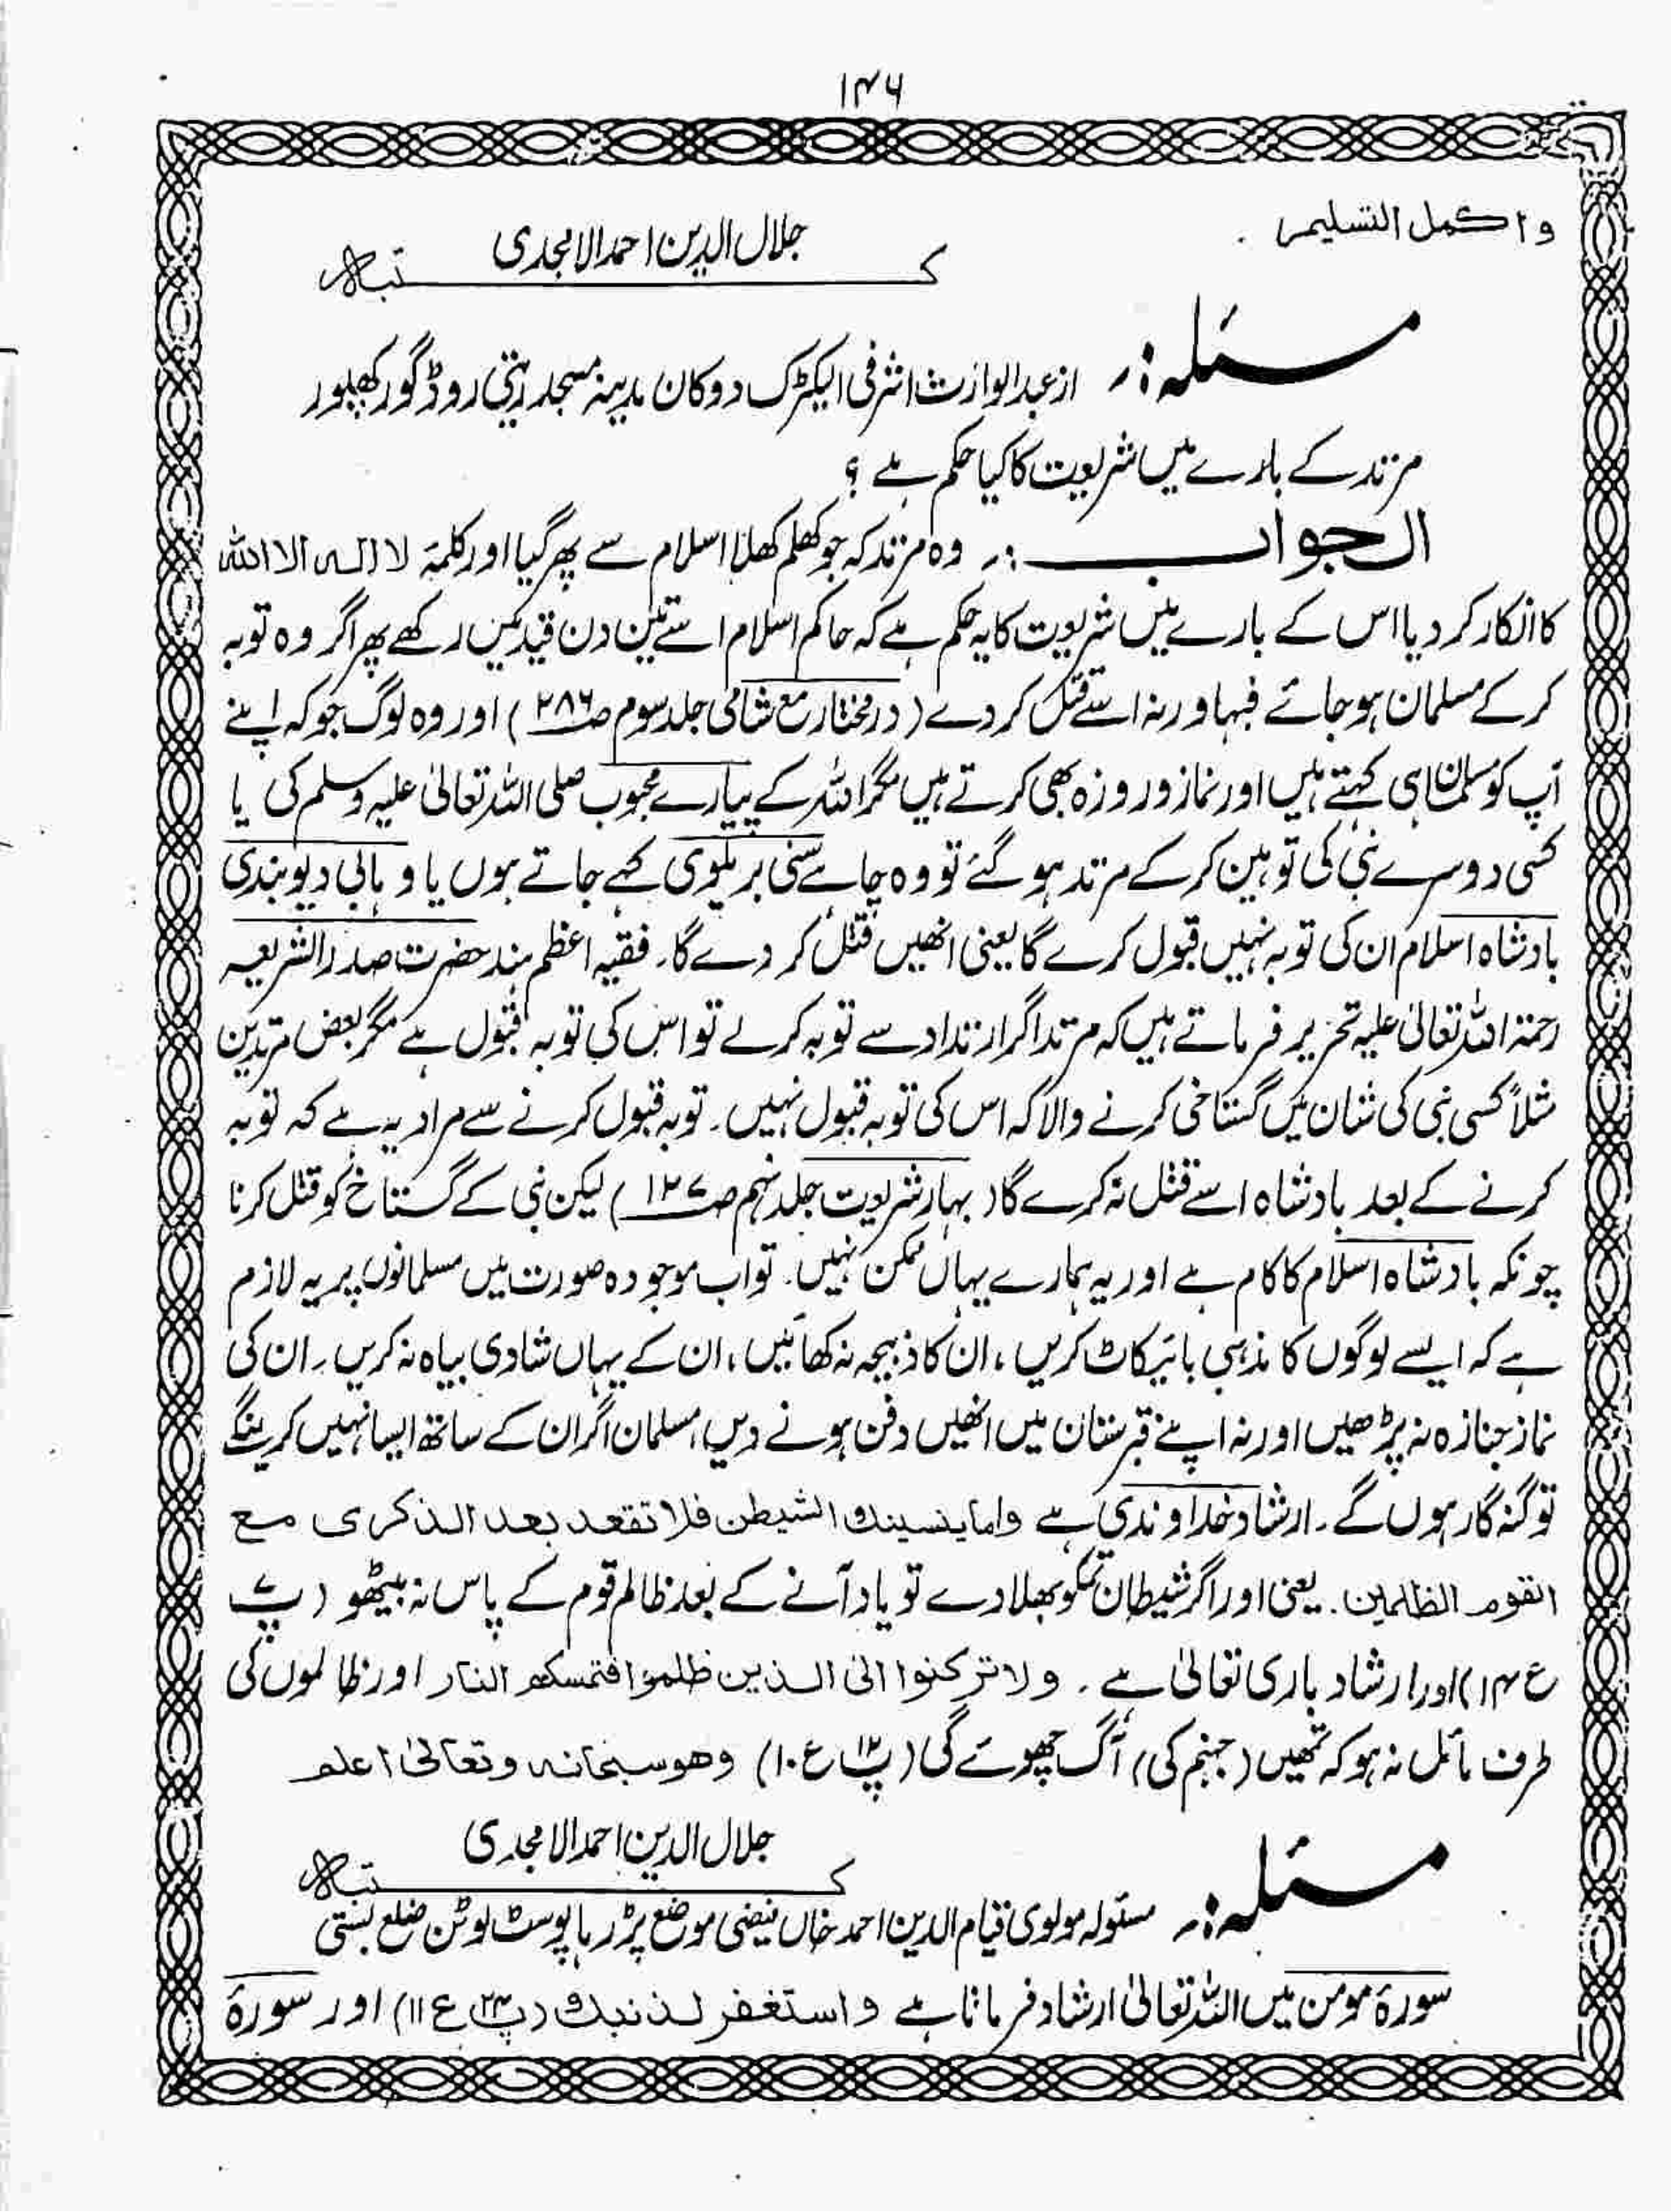 ۱۴۶
واکمل التسلیم۔
جلال الدین احمد الامجدی
کتبہ
مسئلہ:۔ از عبدالوارث اشرفی الیکٹرک دوکان مدینہ مسجد ریتی روڈ گورکھپور
مرتد کے بارے میں شریعت کا کیا حکم ہے ؟
الجواب :۔ وہ مرتد کہ جو کھلم کھلا اسلام سے پھر گیا اور کلمۂ لا الہ الا اللہ
کا انکار کر دیا اس کے بارے میں شریعت کا یہ حکم ہے کہ حاکم اسلام اسے تین دن قید میں رکھے پھر اگر وہ توبہ
کرکے مسلمان ہو جائے فبہا ورنہ اسے قتل کر دے (درمختار مع شامی جلد سوم ص ۲۸۶) اور وہ لوگ جو کہ اپنے
آپ کو مسلمان ہی کہتے ہیں اور نماز و روزہ بھی کرتے ہیں مگر اللہ کے پیارے محبوب صلی اللہ تعالیٰ علیہ وسلم کی یا
کسی دوسرے نبی کی توہین کرکے مرتد ہو گئے تو وہ چاہے سنی بریلوی کہے جاتے ہوں یا وہابی دیوبندی
بادشاہ اسلام ان کی توبہ نہیں قبول کرے گا یعنی انھیں قتل کر دے گا۔ فقیہ اعظم ہند حضرت صدر الشریعہ
رحمۃ اللہ تعالیٰ علیہ تحریر فرماتے ہیں کہ مرتد اگر ارتداد سے توبہ کرلے تو اس کی توبہ قبول ہے مگر بعض مرتدین
مثلاً کسی نبی کی شان میں گستاخی کرنے والا کہ اس کی توبہ قبول نہیں۔ توبہ قبول کرنے سے مراد یہ ہے کہ توبہ
کرنے کے بعد بادشاہ اسے قتل نہ کرے گا (بہار شریعت جلد نہم ص ۱۲۷) لیکن نبی کے گستاخ کو قتل کرنا
چونکہ بادشاہ اسلام کا کام ہے اور یہ ہمارے یہاں ممکن نہیں۔ تو اب موجودہ صورت میں مسلمانوں پر یہ لازم
ہے کہ ایسے لوگوں کا مذہبی بائیکاٹ کریں ، ان کا ذبیحہ نہ کھائیں ، ان کے یہاں شادی بیاہ نہ کریں۔ ان کی
نماز جنازہ نہ پڑھیں اور نہ اپنے قبرستان میں انھیں دفن ہونے دیں، مسلمان اگر ان کے ساتھ ایسا نہیں کرینگے
تو گنہ گار ہوں گے۔ ارشاد خداوندی ہے واما ینسینک الشیطن فلا تقعد بعد الذکری مع
القوم الظلمین۔ یعنی اور اگر شیطان تمکو بھلا دے تو یاد آنے کے بعد ظالم قوم کے پاس نہ بیٹھو (پ ۷
ع ۱۴) اور ارشاد باری تعالیٰ ہے۔ ولا ترکنوا الی الذین ظلموا فتمسکم النار اور ظالموں کی
طرف مائل نہ ہو کہ تمھیں (جہنم کی) آگ چھوئے گی (پ ۱۲ ع ۱۰) وھو سبحانہ وتعالیٰ اعلم
جلال الدین احمد الامجدی
کتبہ
مسئلہ:۔ مسئولہ مولوی قیام الدین احمد خاں فیضی موضع پڑرہا پوسٹ لوٹن ضلع بستی
سورۂ مومن میں اللہ تعالیٰ ارشاد فرماتا ہے واستغفر لذنبک (پ ۲۴ ع ۱۱) اور سورۂ